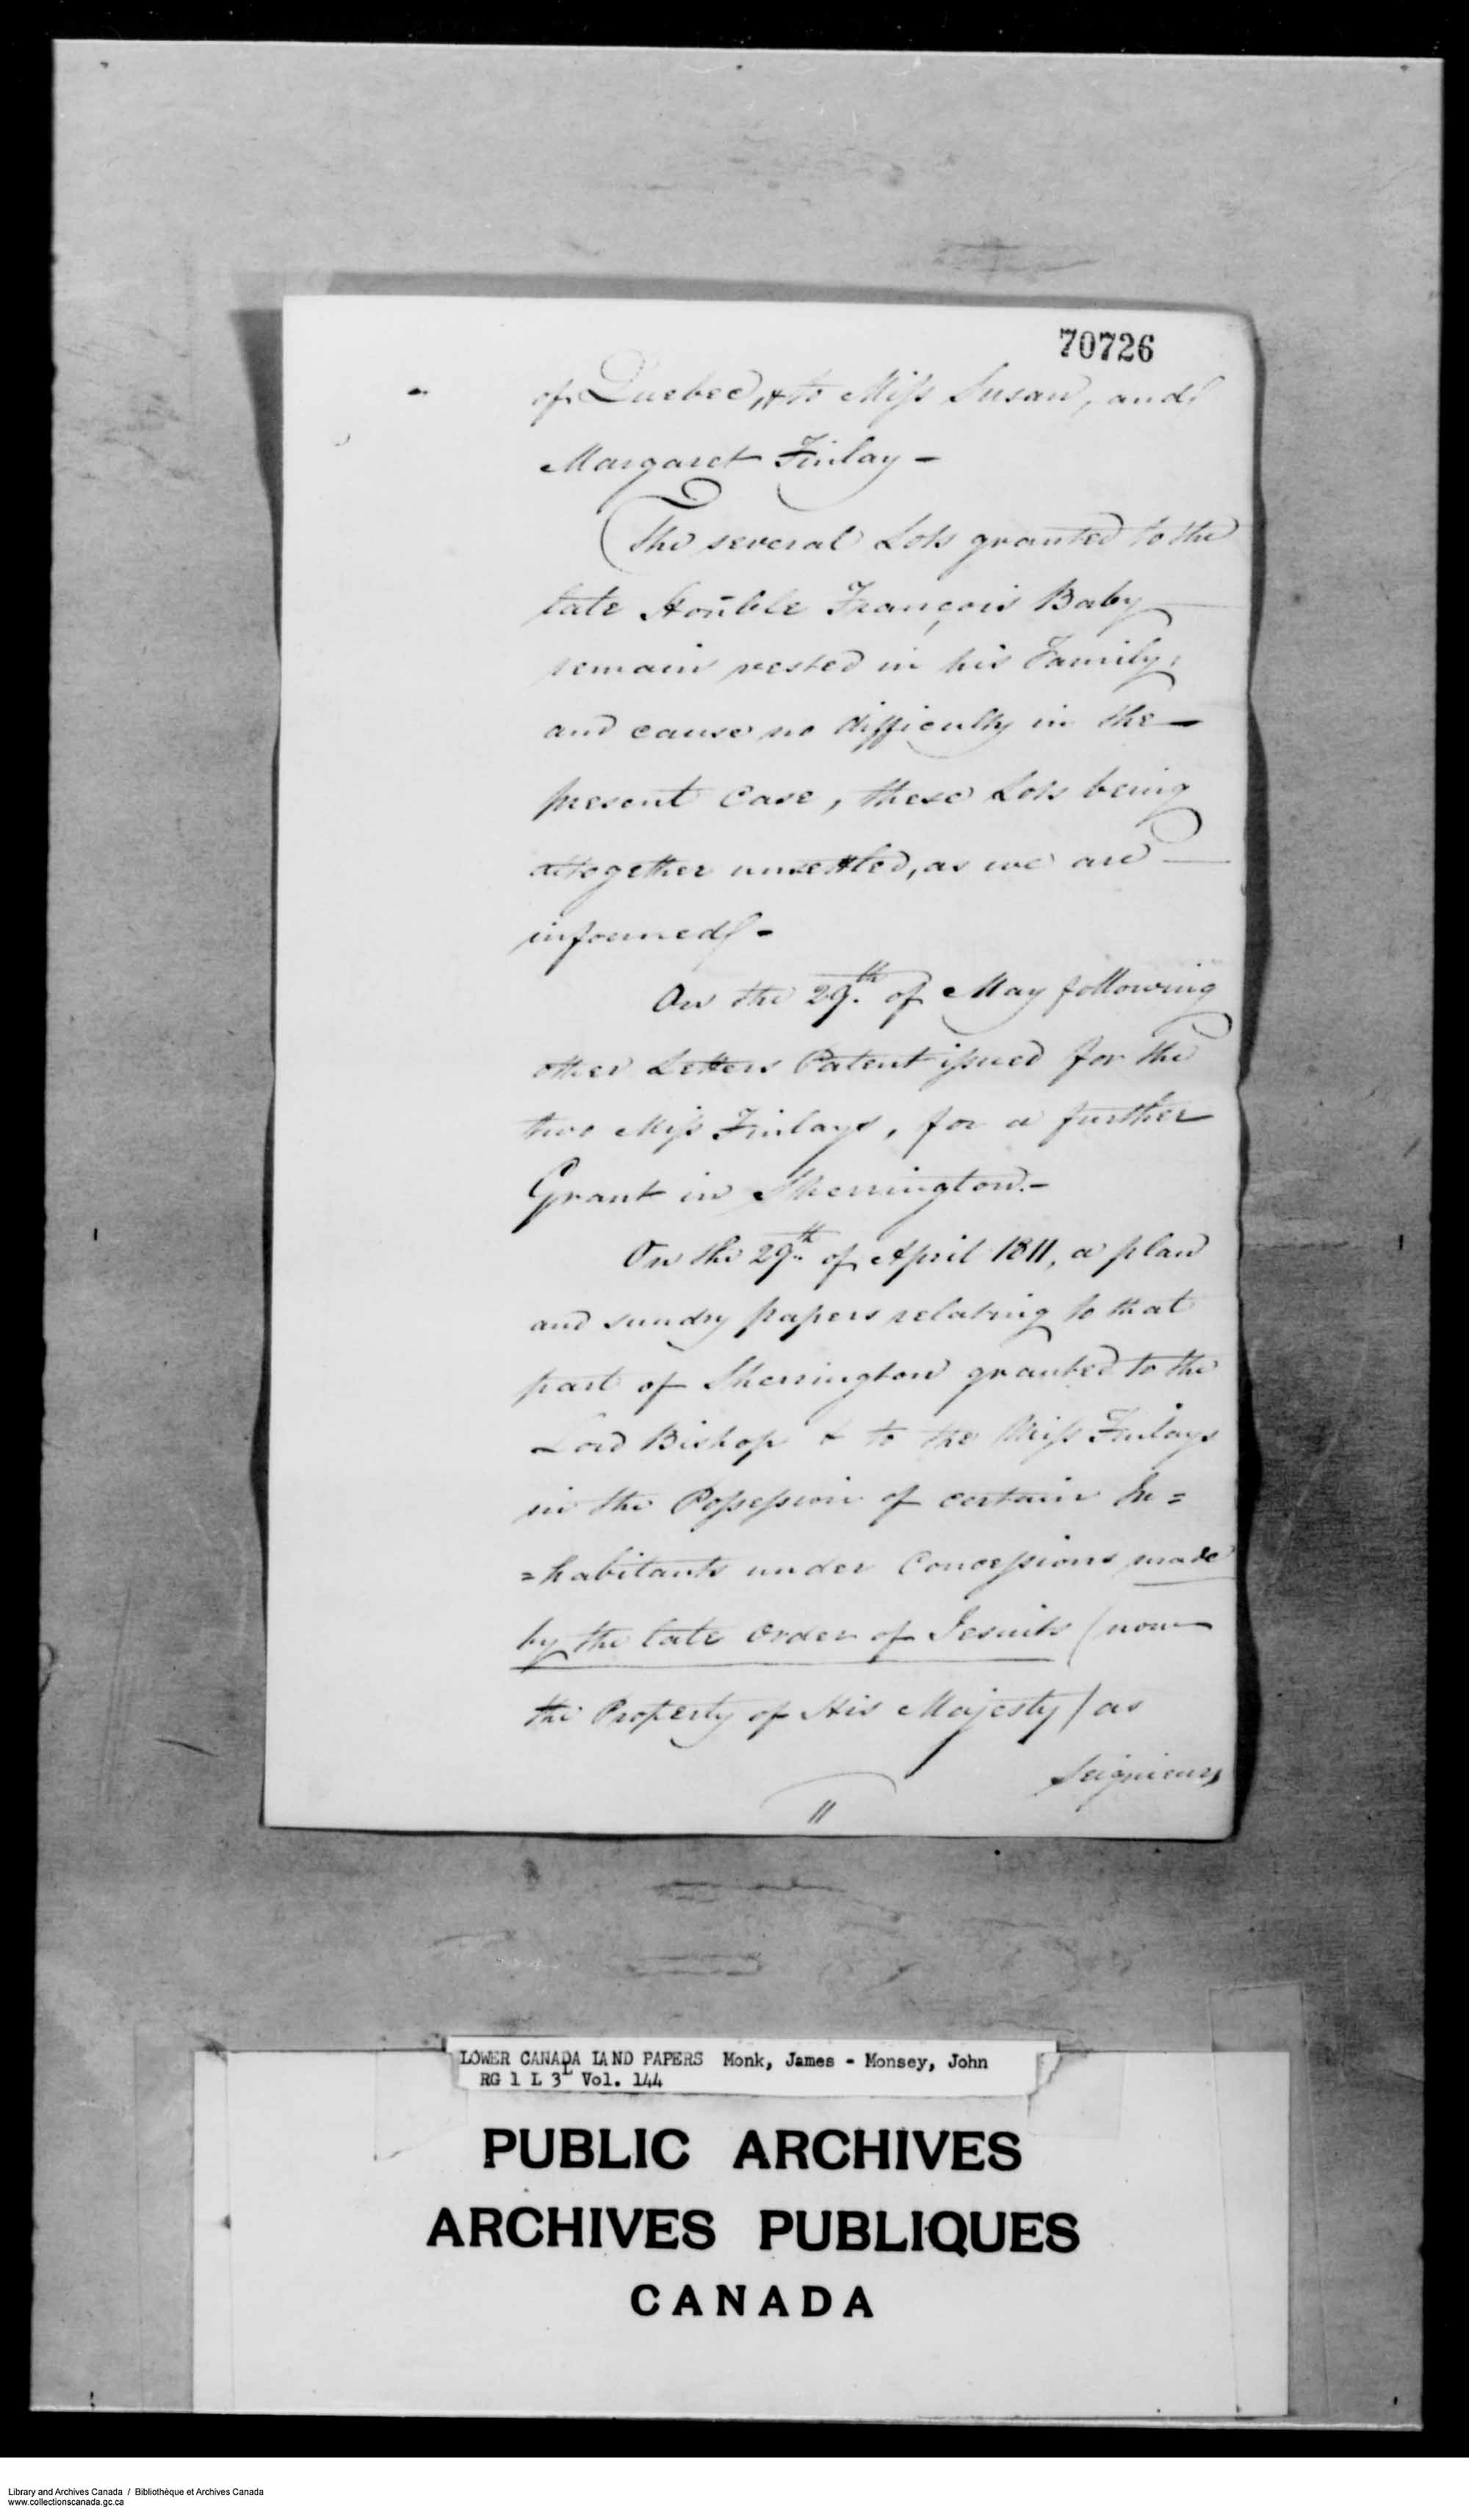 70726
of Quebec, & to Miss Susan, and
Margaret Finlay -
The several Lots granted to the
late Honble François Baby
remain vested in his Family,
and cause no difficulty in the
present Case, these Lots being
altogether unsettled, as we are
informed -
On the 29th of May following
other Letters Patent issued for the
two Miss Finlays, for a further
Grant in Sherrington. -
On the 29th of April 1811, a plan
and sundry papers relating to that
part of Sherrington granted to the
Lord Bishop & to the Miss Finlays
in the Possession of certain In=
=habitants under Concessions made
by the late Order of Jesuits (now
the Property of His Majesty) as
Seigniors
11
LOWER CANADA LAND PAPERS Monk, James - Monsey, John
RG 1 L 3L Vol. 144
PUBLIC ARCHIVES
ARCHIVES PUBLIQUES
CANADA
Library and Archives Canada / Bibliothèque et Archives Canada
www.collectionscanada.gc.ca